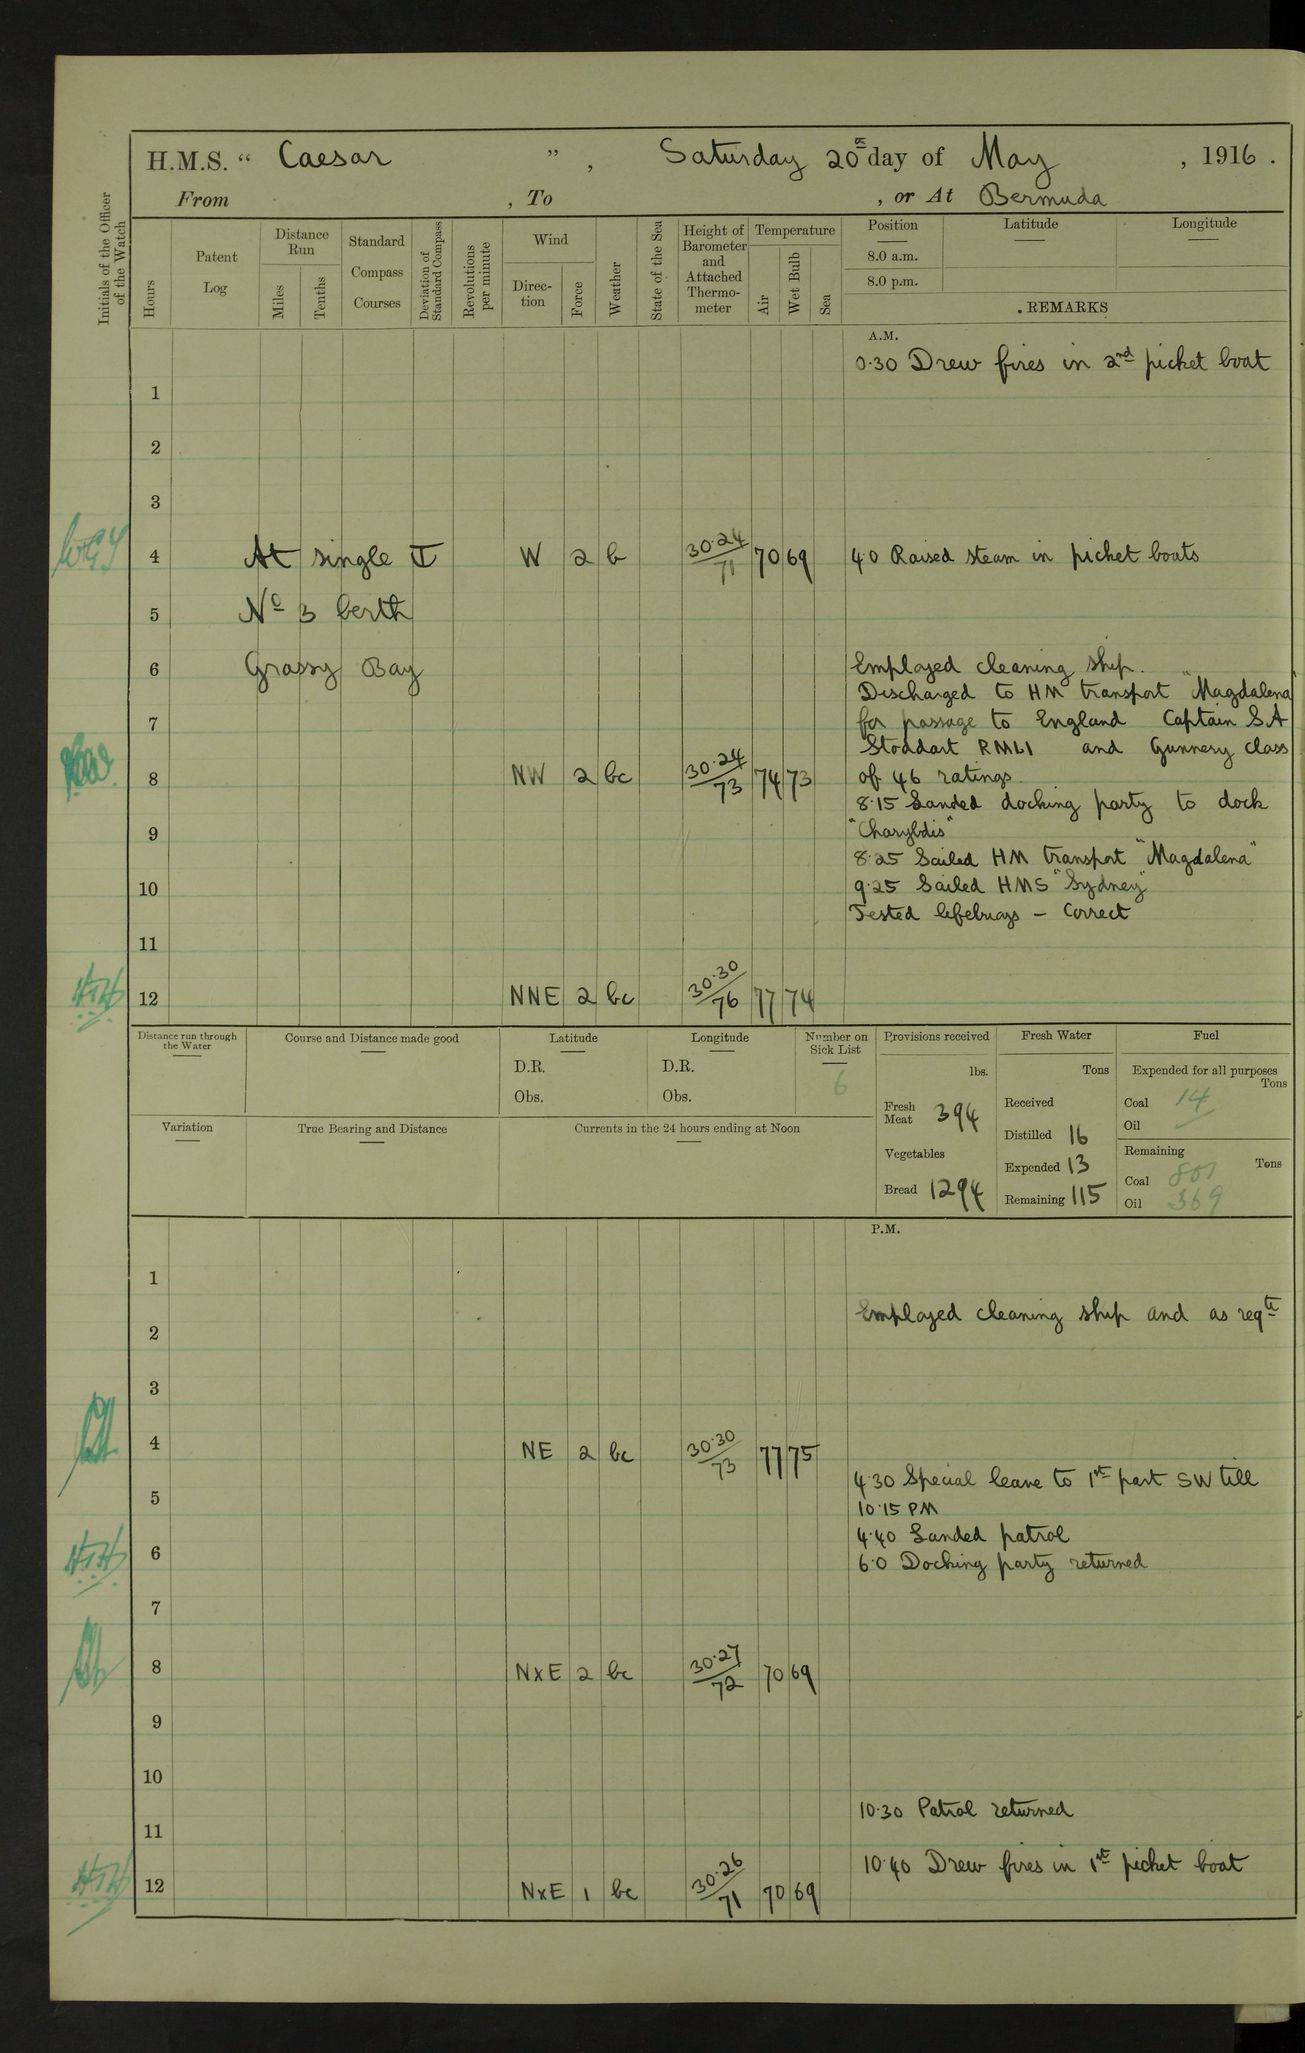 H.M.S. “ Caesar ” , Saturday 20th day of May , 1916 .
From , To , or At Bermuda
Initials of the Officer of the Watch
Hours
Patent Log
Distance Run
Miles
Tenths
Standard Compass Courses
Deviation of Standard Compass
Revolutions per minute
Wind
Direction
Force
Weather
State of the Sea
Height of Barometer and Attached Thermometer
Temperature
Air
Wet Bulb
Sea
Position Latitude Longitude
8.0 a.m.
8.0 p.m.
REMARKS
A.M.
0.30 Drew fires in 2nd picket boat
1
2
3
4 At single ⚓ W 2 b 30.24/71 70 69 4.0 Raised steam in picket boats
5 No 3 berth
6 Grassy Bay Employed cleaning ship.
Discharged to HM transport "Magdalena"
7 for passage to England Captain S A
Stoddart RMLI and Gunnery class
8 NW 2 bc 30.24/73 74 73 of 46 ratings.
8.15 Landed docking party to dock
9 "Charybdis"
8.25 Sailed HM transport "Magdalena"
10 9.25 Sailed HMS "Sydney"
Tested lifebuoys - Correct
11
12 NNE 2 bc 30.30/76 77 74
Distance run through the Water
Course and Distance made good
Latitude
D.R.
Obs.
Longitude
D.R.
Obs.
Number on Sick List
6
Provisions received
lbs.
Fresh Meat 394
Vegetables
Bread 1294
Fresh Water
Tons
Received
Distilled 16
Expended 13
Remaining 115
Fuel
Expended for all purposes
Tons
Coal 14
Oil
Remaining
Tons
Coal 801
Oil 369
Variation
True Bearing and Distance
Currents in the 24 hours ending at Noon
P.M.
1
Employed cleaning ship and as reqte
2
3
4 NE 2 bc 30.30/73 77 75
4.30 Special leave to 1st part SW till
5 10.15 PM
4.40 Landed patrol
6 6.0 Docking party returned
7
8 NxE 2 bc 30.27/72 70 69
9
10
10.30 Patrol returned
11
10.40 Drew fires in 1st picket boat
12 NxE 1 bc 30.26/71 70 69